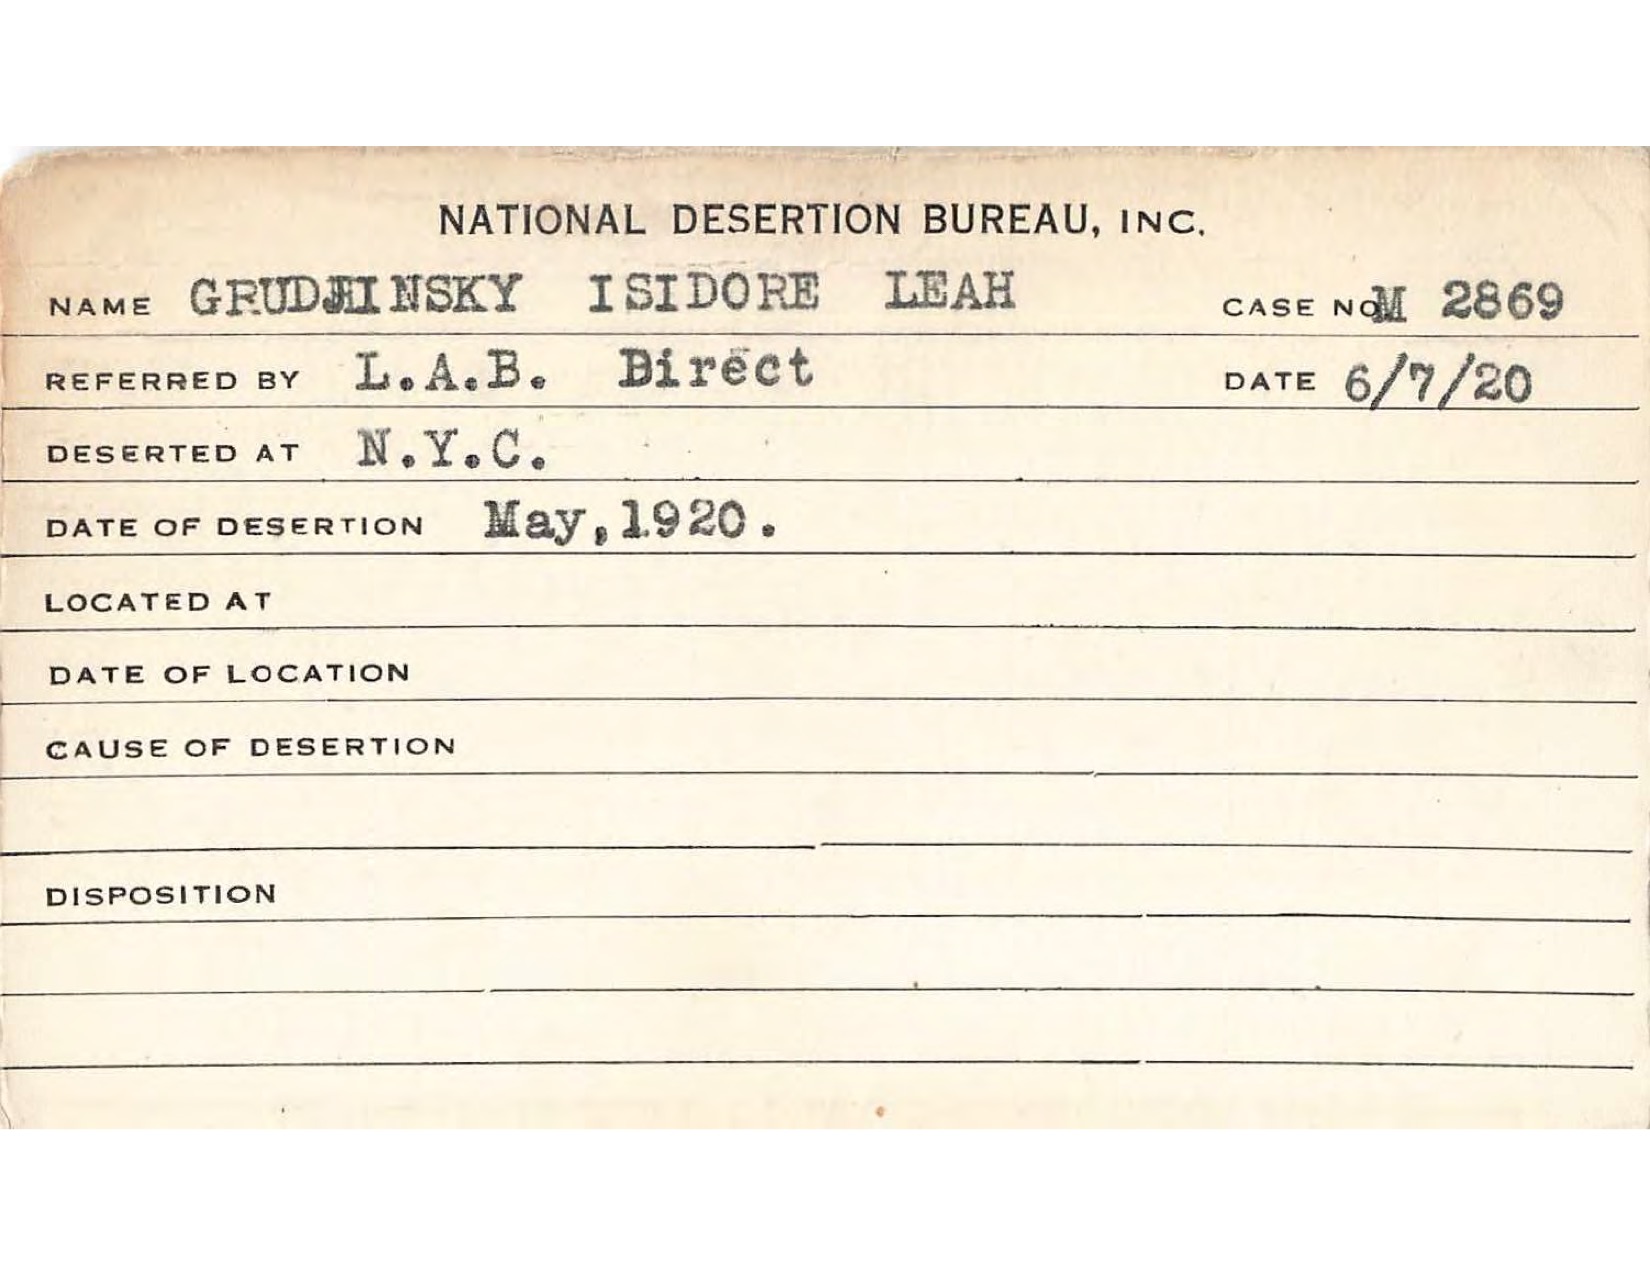 NATIONAL DESERTION BUREAU, INC.
NAME ISIDORE LEAH CASE NO. M 2869
REFERRED BY L.A.B. Direct DATE 6/7/20
DESERTED AT N.Y.C.
DATE OF DESERTION May, 1920.
LOCATED AT
DATE OF LOCATION
CAUSE OF DESERTION
DISPOSITION